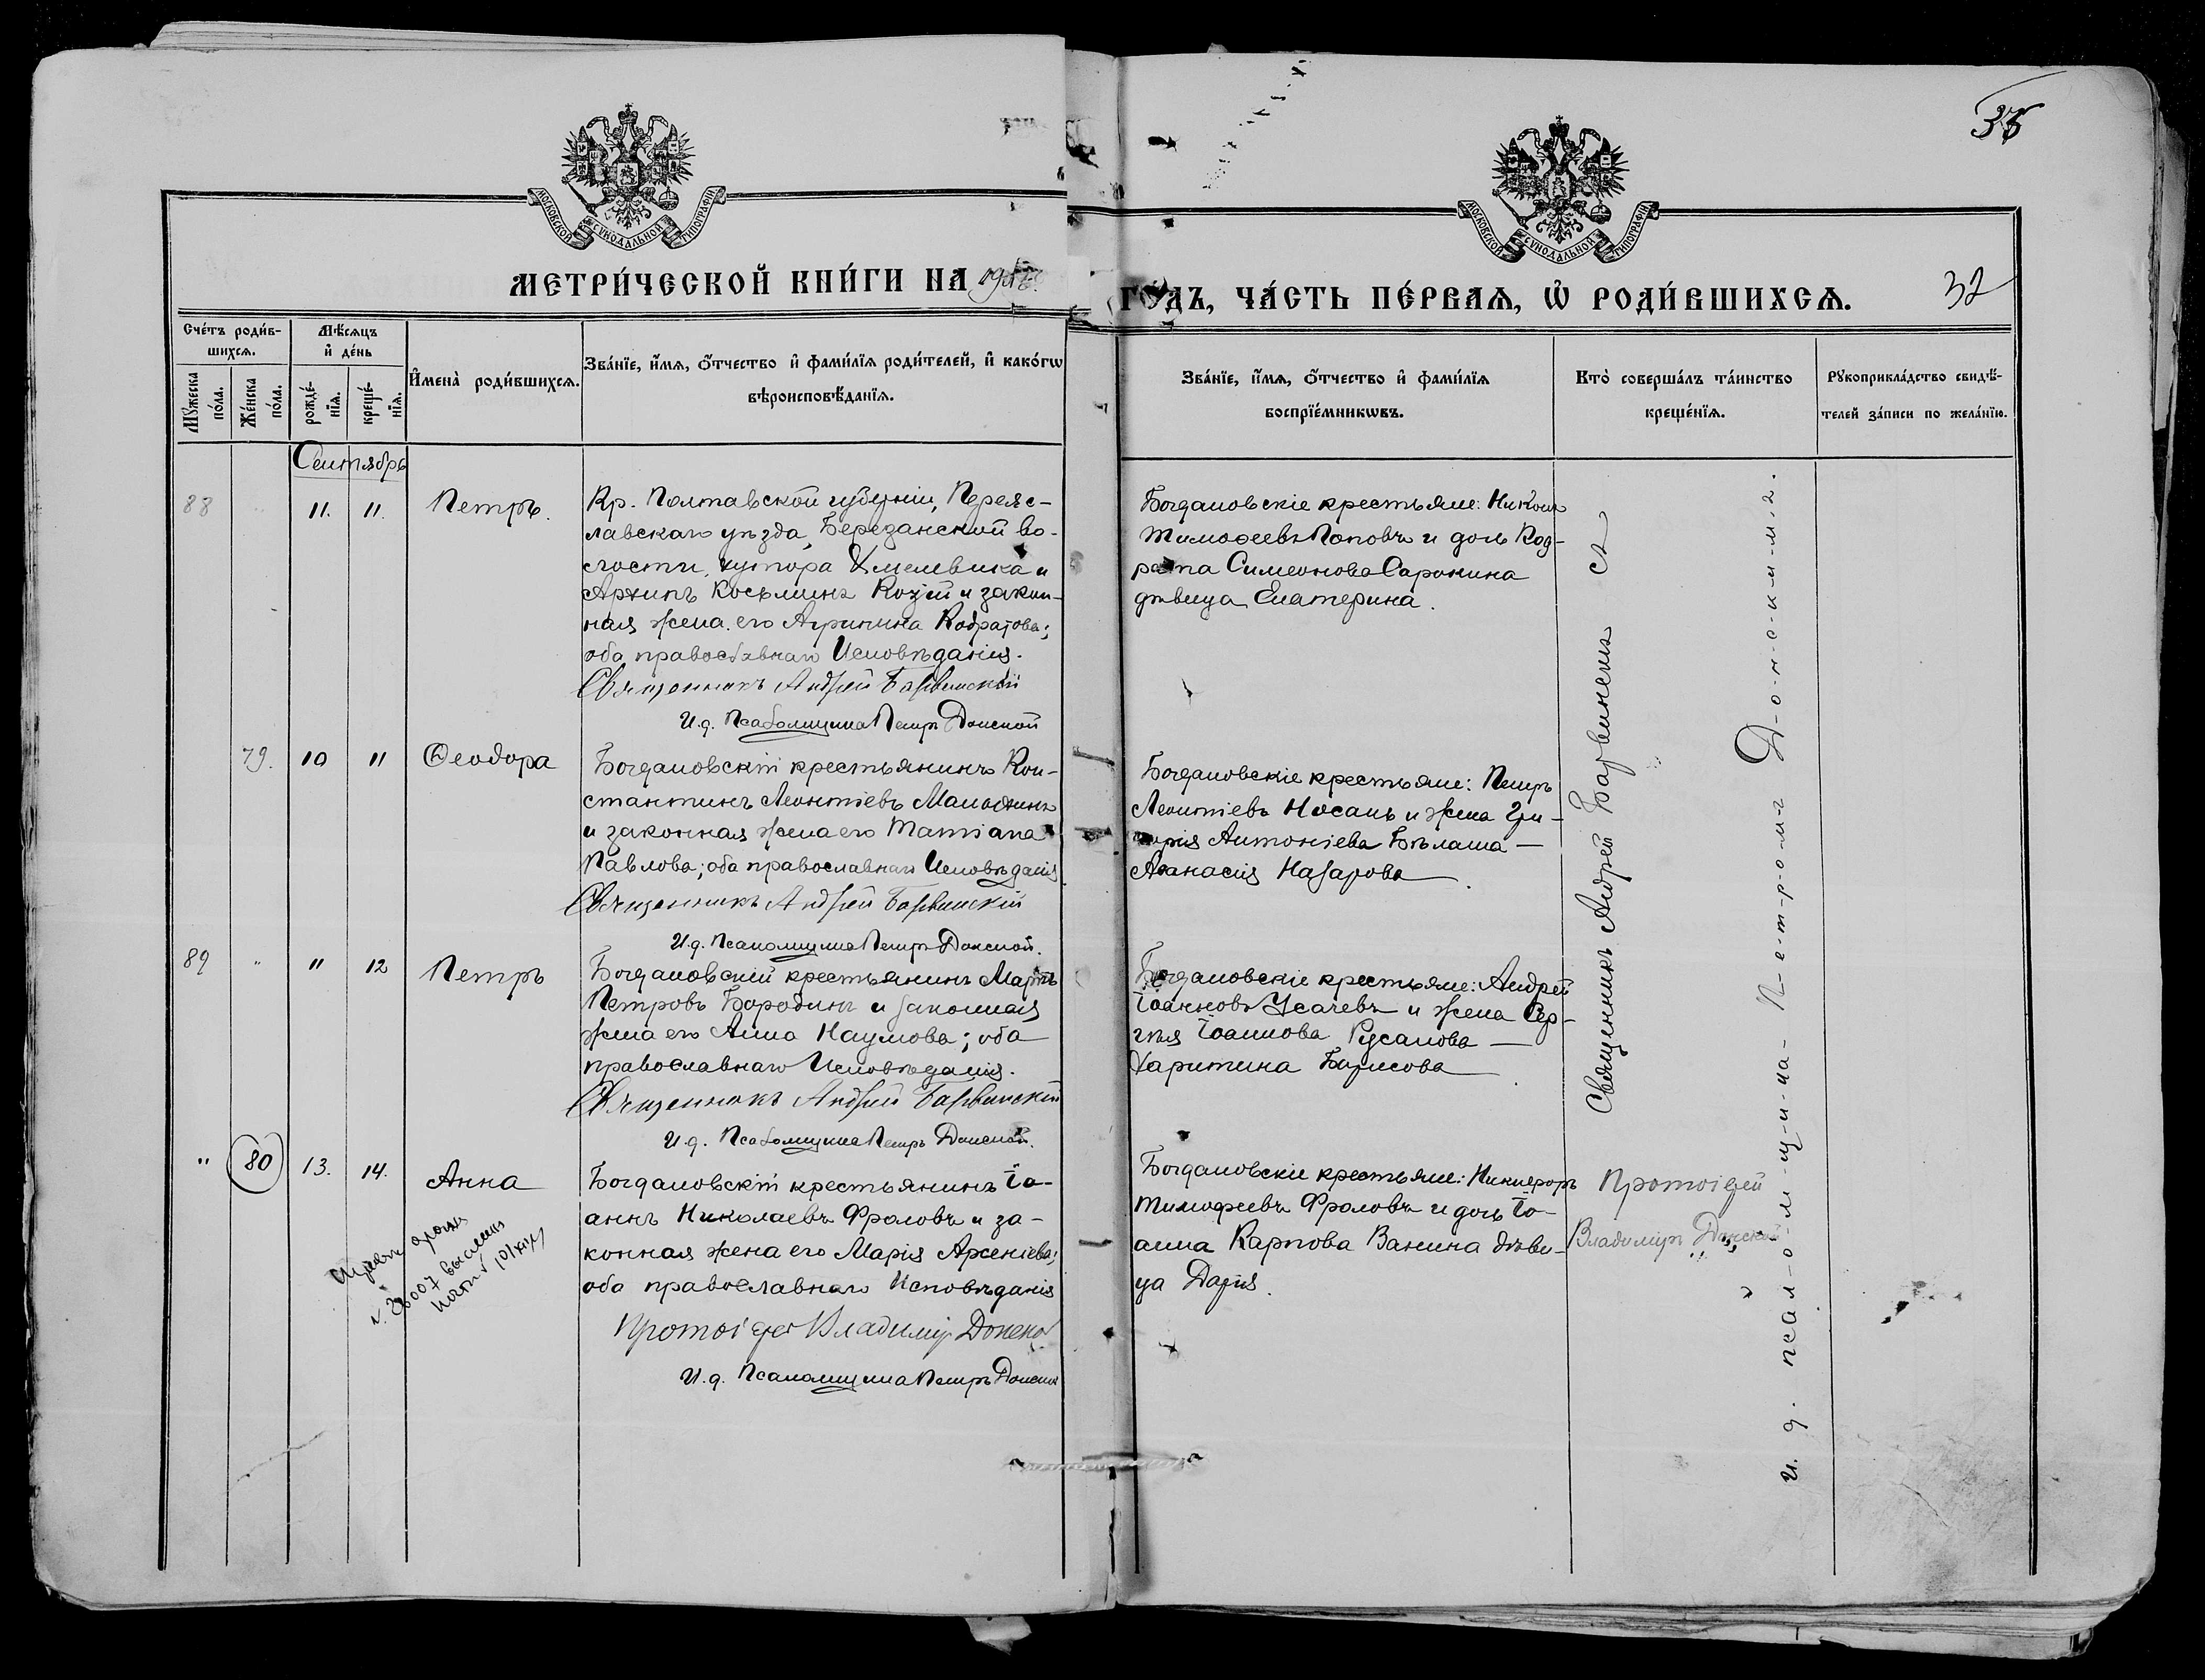 35
МОСКОВСКОЙ СѴНОДАЛЬНОЙ ТИПОГРАФІИ
МОСКОВСКОЙ СѴНОДАЛЬНОЙ ТИПОГРАФІИ
МЕТРИ́ЧЕСКОЙ КНИ́ГИ НА
ГО́ДЪ, ЧА́СТЬ ПЕ́РВАѦ, Ѽ РОДИ́ВШИХСѦ.
32
Сче́тъ роди́в-
шихсѧ.
Мѣ́сѧцъ
и҆ де́нь
Мꙋ́жеска
по́ла.
Же́нска
по́ла.
рожде́-
нїѧ.
креще́-
нїѧ.
И҆мена̀ роди́вшихсѧ.
Зва́нїе, и҆́мѧ, ѻ҆́тчество и҆ фами́лїѧ роди́телей, и҆ како́гѡ
вѣроисповѣ́данїѧ.
Зва́нїе, и҆́мѧ, ѻ҆́тчество и҆ фами́лїѧ
воспрїе́мникѡвъ.
Кто̀ соверша́лъ та́инство
креще́нїѧ.
Рꙋкоприкла́дство свидѣ́-
телей за́писи по жела́нїю.
Сентябрь
88 " 11. 11. Петръ.
Кр. Полтавской губерніи, Переяс-
лавскаго уѣзда, Березанской во-
лости, хутора Хмелевика и
Архипъ Косьминъ Козій и закон-
ная жена его Агрипина Кодратова;
оба православнаго Исповѣданія.
Священникъ Андрей Барвинскій
И.д. Псаломщика Петръ Донской
Богдановскіе крестьяне: Никола
Тимофеевъ Поповъ и дочь Код-
рата Симеонова Саронина
дѣвица Екатерина.
79. 10 11 Ѳеодора
Богдановскій крестьянинъ Кон-
стантинъ Леонтіевъ
и законная жена его Татіана
Павлова; оба православнаго Исповѣданія
Священникъ Андрей Барвинскій
И.д. Псаломщика Петръ Донской.
Богдановскіе крестьяне: Петръ
Леонтіевъ Носань и жена Гри-
горія Антоніева Бѣлаша —
Аѳанасія Назарова
89 " " 12 Петръ
Богдановскій крестьянинъ Маркъ
Петровъ Бородинъ и законная
жена его Анна Наумова; оба
православнаго Исповѣданія.
Священникъ Андрей Барвинскій
И.д. Псаломщика Петръ Донской.
Богдановскіе крестьяне: Андрей
Іоанновъ Усачевъ и жена Сер-
гѣя Іоаннова Русанова —
Харитина Борисова
" 80 13. 14. Анна
Богдановскій крестьянинъ Іо-
аннъ Николаевъ Фроловъ и за-
конная жена его Марія Арсеніева;
оба православнаго Исповѣданія
Протоіерей Владиміръ Донской
И.д. Псаломщика Петръ Донской
Богдановскіе крестьяне: Никифоръ
Тимофеевъ Фроловъ и дочь Іо-
анна Карпова Ванина дѣви-
ца Дарія.
Протоіерей
Владиміръ Донской
Священникъ Андрей Барвинскій съ
и. д. псал-о-м-щ-и-ка- П-е-т-р-о-мъ Д-о-н-с-к-и-м-ъ.